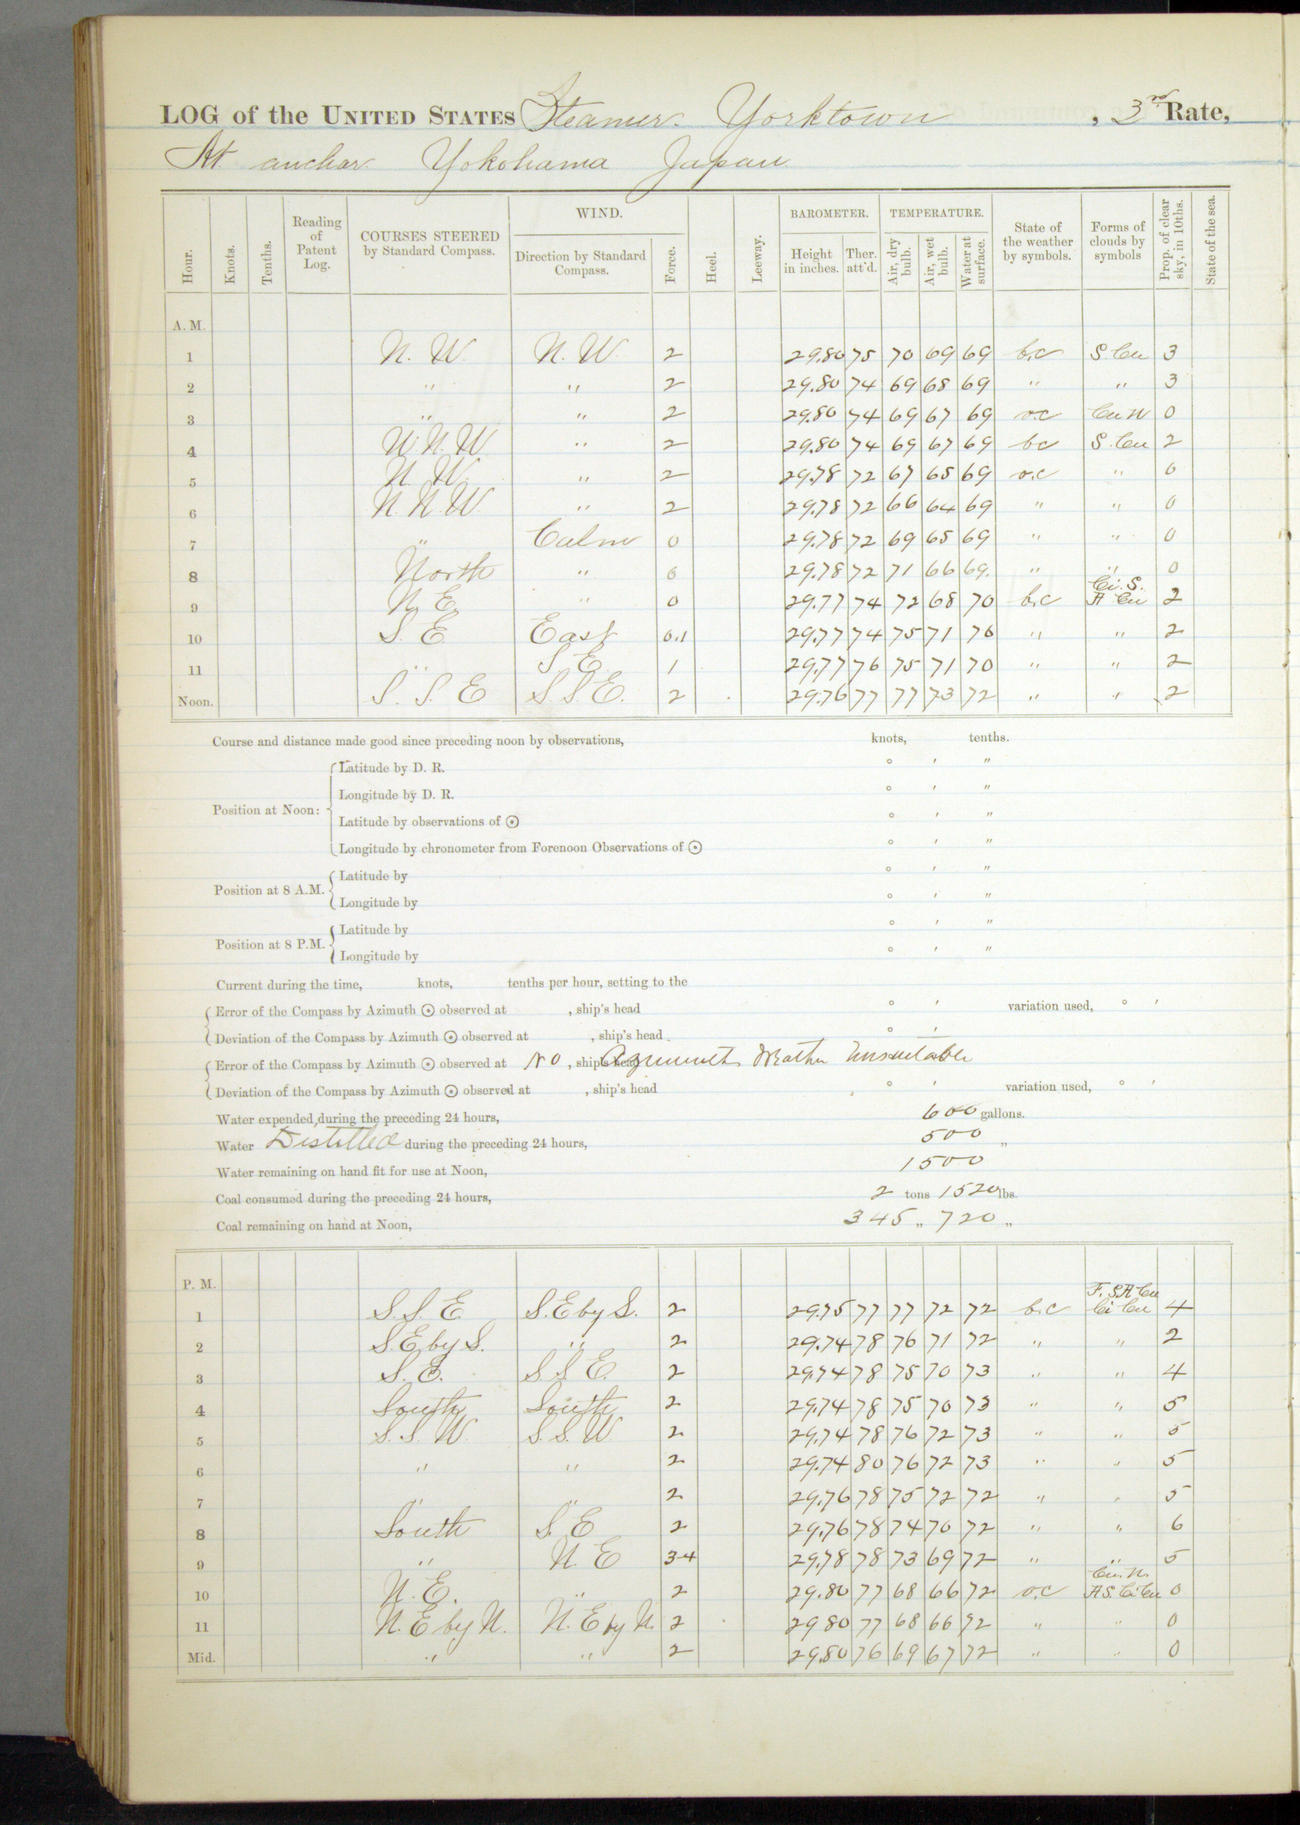 LOG of the UNITED STATES Steamer Yorktown, 3rd Rate,
At anchor Yokohama Japan
Hour. Knots. Tenths. Reading of Patent Log. COURSES STEERED by Standard Compass. WIND. Direction by Standard Compass. Force. Heel. Leeway. BAROMETER. Height in inches. Ther. att'd. TEMPERATURE. Air, dry bulb. Air, wet bulb. Water at surface. State of the weather by symbols. Forms of clouds by symbols Prop. of clear sky, in 10ths. State of the sea.
A. M.
1 N. W. N. W. 2 29.80 75 70 69 69 b.c S. Cu 3
2 " " 2 29.80 74 69 68 69 " " 3
3 " " 2 29.80 74 69 67 69 o.c Cu N 0
4 W N. W " 2 29.80 74 69 67 69 b c S. Cu 2
5 N. W. " 2 29.78 72 67 65 69 o.c " 0
6 N. N. W. " 2 29.78 72 66 64 69 " " 0
7 " Calm 0 29.78 72 69 65 69 " " 0
8 North " 0 29.78 72 71 66 69. " " 0
9 N. E. " 0 29.77 74 72 68 70 b.c Ci. S. A Cu 2
10 S. E East 0.1 29.77 74 75 71 70 " " 2
11 " S. E. 1 29.77 76 75 71 70 " " 2
Noon. S. S. E S. S. E. 2 29.76 77 77 73 72 " " 2
Course and distance made good since preceding noon by observations, knots, tenths.
Position at Noon: Latitude by D. R. ° ' "
Longitude by D. R. ° ' "
Latitude by observations of ☉ ° ' "
Longitude by chronometer from Forenoon Observations of ☉ ° ' "
Position at 8 A.M. Latitude by ° ' "
Longitude by ° ' "
Position at 8 P.M. Latitude by ° ' "
Longitude by ° ' "
Current during the time, knots, tenths per hour, setting to the
Error of the Compass by Azimuth ☉ observed at , ship's head ° ' variation used, ° '
Deviation of the Compass by Azimuth ☉ observed at , ship's head ° '
Error of the Compass by Azimuth ☉ observed at No , ship's head Azimuth Weather Unsuitable
Deviation of the Compass by Azimuth ☉ observed at , ship's head ° ' variation used, ° '
Water expended during the preceding 24 hours, 600 gallons.
Water Distilled during the preceding 24 hours, 500 "
Water remaining on hand fit for use at Noon, 1500
Coal consumed during the preceding 24 hours, 2 tons 1520 lbs.
Coal remaining on hand at Noon, 345 " 720 "
P. M.
1 S. S. E S. E by S. 2 29.75 77 77 72 72 b.c F. S A Cu Ci Cu 4
2 S. E by S. " 2 29.74 78 76 71 72 " " 2
3 S. E. S S E. 2 29.74 78 75 70 73 " " 4
4 South South 2 29.74 78 75 70 73 " " 5
5 S. S W. S. S. W 2 29.74 78 76 72 73 " " 5
6 " " 2 29.74 80 76 72 73 " " 5
7 " " 2 29.76 78 75 72 72 " " 5
8 South S. E 2 29.76 78 74 70 72 " " 6
9 " N. E 3-4 29.78 78 73 69 72 " " 5
10 N. E. " 2 29.80 77 68 66 72 o.c Cu. N. A S. Ci Cu 0
11 N. E by N. N. E by N. 2 29 80 77 68 66 72 " " 0
Mid. " " 2 29.80 76 69 67 72 " " 0